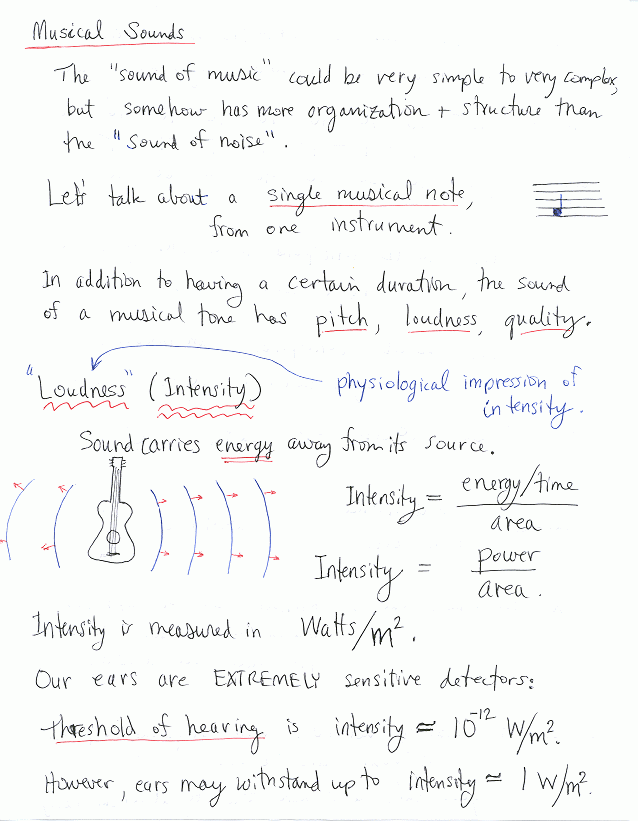 Musical Sounds
The "sound of music" could be very simple to very complex,
but somehow has more organization + structure than
the "sound of noise".
Let's talk about a single musical note,
from one instrument.
In addition to having a certain duration, the sound
of a musical tone has pitch, loudness, quality.
"Loudness" (Intensity)
physiological impression of
intensity.
Sound carries energy away from its source.
Intensity = energy/time
area
Intensity = power
area.
Intensity is measured in Watts/m².
Our ears are EXTREMELY sensitive detectors:
threshold of hearing is intensity ≈ 10⁻¹² W/m².
However, ears may withstand up to intensity ≈ 1 W/m².